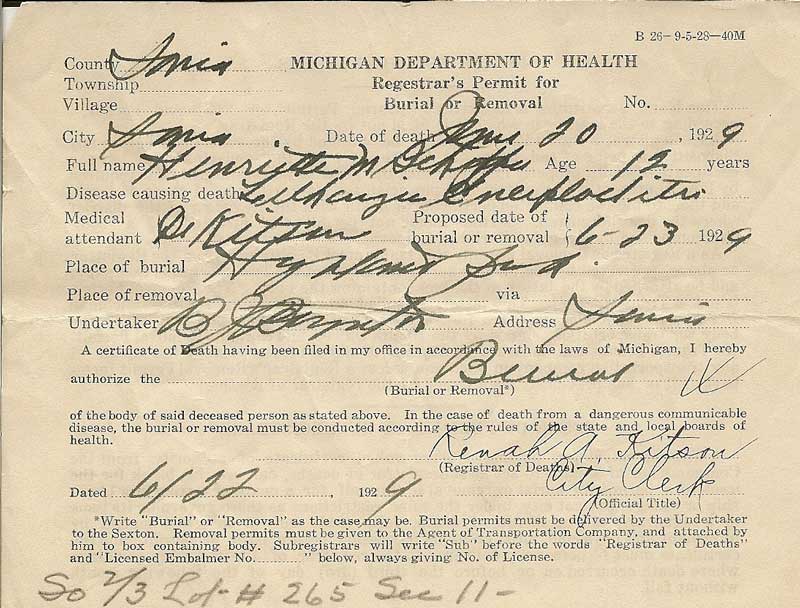 B 26—9-5-28—40M
County Ionia MICHIGAN DEPARTMENT OF HEALTH
Township Regestrar's Permit for
Village Burial or Removal No.
City Ionia Date of death June 20, 1929
Full name Henrietta M Age 12 years
Disease causing death
Medical Proposed date of
attendant Dr Kitson burial or removal 6-23 1929
Place of burial Highland
Place of removal via
Undertaker B Boynton Address Ionia
A certificate of Death having been filed in my office in accordance with the laws of Michigan, I hereby
authorize the Burial
(Burial or Removal*)
of the body of said deceased person as stated above. In the case of death from a dangerous communicable
disease, the burial or removal must be conducted according to the rules of the state and local boards of
health.
Renah A. Kitson
(Registrar of Deaths)
City Clerk
Dated 6/22, 1929
(Official Title)
*Write "Burial" or "Removal" as the case may be. Burial permits must be delivered by the Undertaker
to the Sexton. Removal permits must be given to the Agent of Transportation Company, and attached by
him to box containing body. Subregistrars will write "Sub" before the words "Registrar of Deaths"
and "Licensed Embalmer No. " below, always giving No. of License.
So 2/3 Lot # 265 Sec 11-